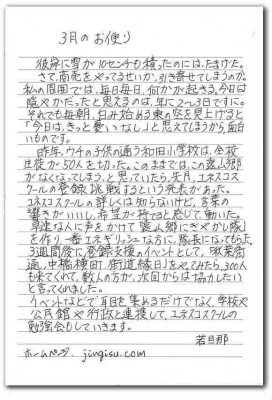 3月のお便り
彼岸に雪が10センチも積ったのには、たまげた。
さて、商売をやってるせいか、引き寄せてしまうのか、
私の周囲では、毎日毎日、何かが起きる。今日は
穏やかだったと思えるのは、年に2〜3日ですに。
それでも毎朝、白み始める東の空を見上げると
「今日は、きっと憂いっなし」と思えてしまうから面白
いものです。
昨年、ウチの子供の通う和田小学校は、全校
生徒が50人を切った。このままでは、この遠山郷
がなくなってしまう、と思っていたら、先月、ユネスコス
クールの登録に挑戦するという発表があった。
ユネスコスクールの詳しくは知らないけど、言葉の
響きがいいし、希望が持てると感じて動いた。
早速な人に声をかけて「遠山郷にぎやかし隊」
を作り、一番エネルギッシュな方に、隊長になってもらった。
3週間後に、登録支援のイベントとして「秋葉街
道、中橋横町、街道縁日」をやってみたら、300人
も来てくれて、数人の方が、次回からは協力したい
と言ってくれました。
イベントなどで耳目を集めるだけでなく、学校や
公民館や行政と連携して、ユネスコスクールの
勉強会もしていきます。
若旦那
ホームページ. jingisu.com